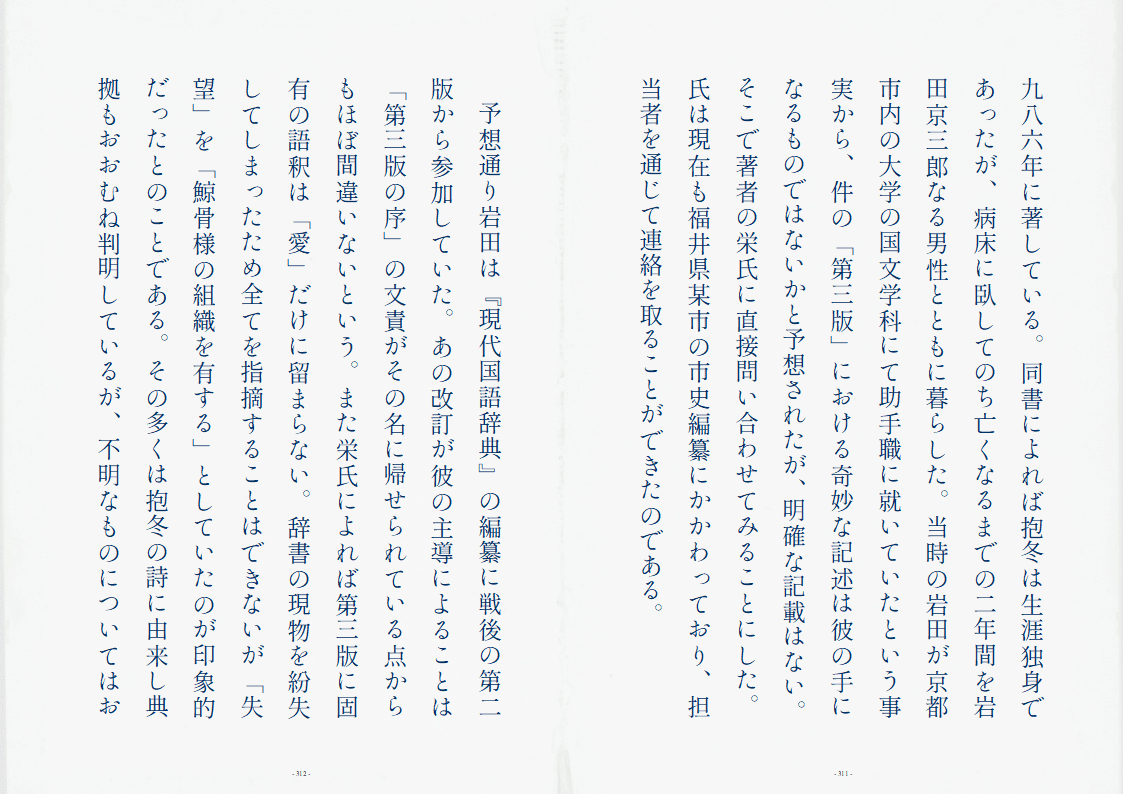 九八六年に著している。同書によれば抱冬は生涯独身で
あったが、病床に臥してのち亡くなるまでの二年間を岩
田京三郎なる男性とともに暮らした。当時の岩田が京都
市内の大学の国文学科にて助手職に就いていたという事
実から、件の「第三版」における奇妙な記述は彼の手に
なるものではないかと予想されたが、明確な記載はない。
そこで著者の栄氏に直接問い合わせてみることにした。
氏は現在も福井県某市の市史編纂にかかわっており、担
当者を通じて連絡を取ることができたのである。
- 311 -
予想通り岩田は『現代国語辞典』の編纂に戦後の第二
版から参加していた。あの改訂が彼の主導によることは
「第三版の序」の文責がその名に帰せられている点から
もほぼ間違いないという。また栄氏によれば第三版に固
有の語釈は「愛」だけに留まらない。辞書の現物を紛失
してしまったため全てを指摘することはできないが「失
望」を「鯨骨様の組織を有する」としていたのが印象的
だったとのことである。その多くは抱冬の詩に由来し典
拠もおおむね判明しているが、不明なものについてはお
- 312 -